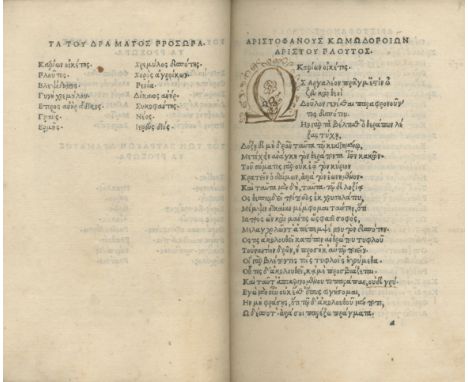 ΤΑ ΤΟΥ ΔΡΑΜΑΤΟΣ ΠΡΟΣΩΠΑ.
Καρίων οἰκέτης.
Πλοῦτος.
Βλεψίδημος.
Γυνὴ χρεμύλου.
Ἕτερος ἀνὴρ ἄδικος.
Γραῦς.
Ἑρμῆς.
Χρεμύλος δεσπότης.
Χορὸς ἀγροίκων.
Πενία.
Δίκαιος ἀνήρ.
Συκοφάντης.
Νέος.
Ἱερεὺς διός.
ΑΡΙΣΤΟΦΑΝΟΥΣ ΚΩΜΩΔΟΠΟΙΩΝ
ΑΡΙΣΤΟΥ ΠΛΟΥΤΟΣ.
Καρίων οἰκέτης.
Ως Αργαλέον πρᾶγμ' ἐστὶν ὦ
ζεῦ καὶ θεοὶ
Δοῦλον γενέσθαι παραφρονοῦντος
δεσπότου.
Ἢν γὰρ τὰ βέλτισθ' ὁ θεράπων λέξας
τύχῃ,
Δόξῃ δὲ μὴ δρᾶν ταῦτα τῷ κεκτημένῳ,
Μετέχειν ἀνάγκη τὸν θεράποντα τῶν κακῶν.
Τοῦ σώματος γὰρ οὐκ ἐᾷ τὸν κύριον
Κρατεῖν ὁ δαίμων, ἀλλὰ τὸν ἐωνημένον.
Καὶ ταῦτα μὲν δὴ ταῦτα. τῷ δὲ λοξίᾳ
Ὃς θεσπιῳδεῖ τρίποδος ἐκ χρυσηλάτου,
Μέμψιν δικαίαν μέμφομαι ταύτην, ὅτι
Ἰατρὸς ὢν καὶ μάντις ὥς φασι σοφὸς,
Μελαγχολῶντ' ἀπέπεμψέ μου τὸν δεσπότην.
Ὅστις ἀκολουθεῖ κατόπιν ἀνθρώπου τυφλοῦ
Τοὐναντίον δρῶν, ἢ προσῆκ' αὐτῷ ποιεῖν.
Οἱ γὰρ βλέποντες τοῖς τυφλοῖς ἡγούμεθα.
Οὗτος δ' ἀκολουθεῖ, κἀμὲ προσβιάζεται.
Καὶ ταῦτ' ἀποκρινομένου τὸ παράπαν, οὐδὲ γρύ.
Ἐγὼ μὲν οὖν οὐκ ἔσθ' ὅπως σιγήσομαι,
Ἢν μὴ φράσῃς, ὅτι τῷδ' ἀκολουθοῦμέν ποτε,
Ὦ δέσποτ' ἀλλά σοι παρέξω πράγματα.
a